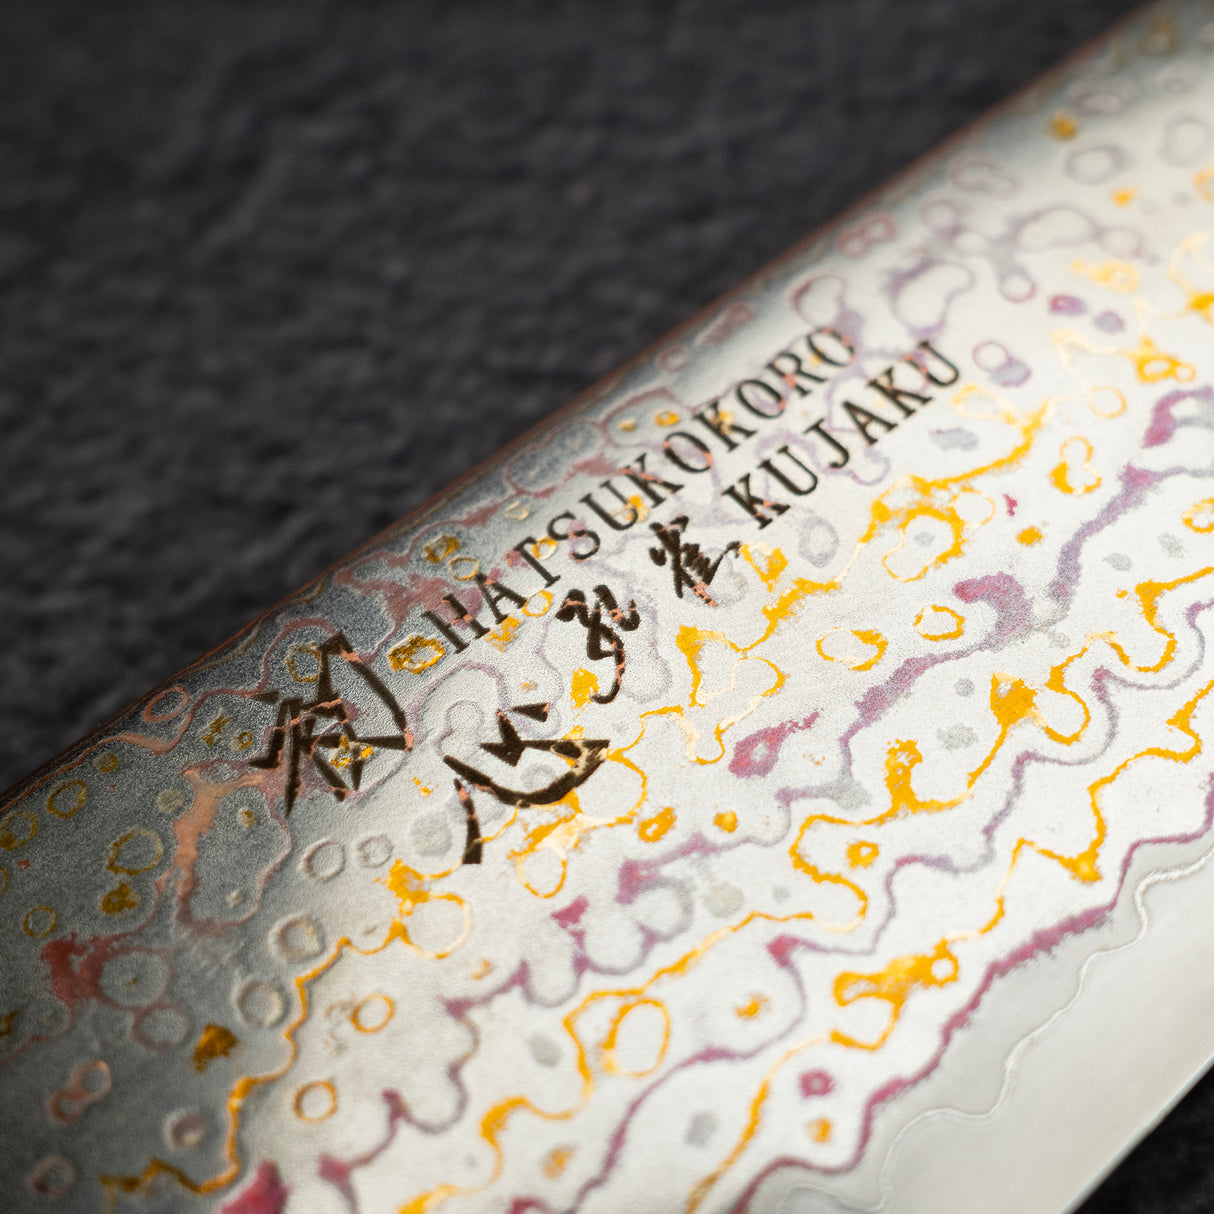 HATSUKOKORO
KUJAKU
初心
孔雀